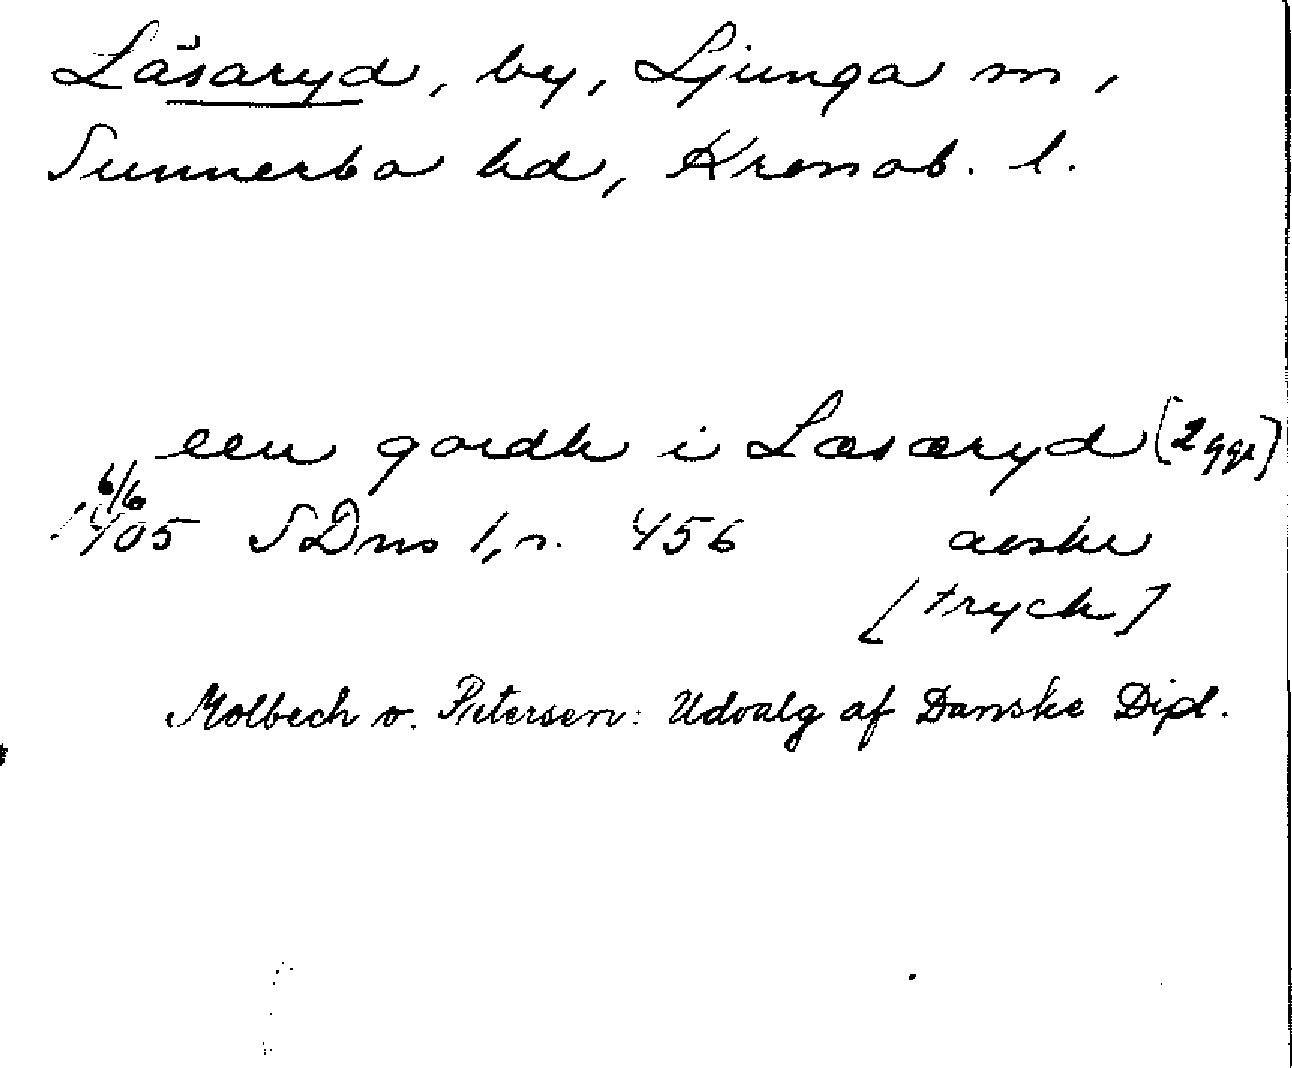 Läsaryd, by, Ljunga sn,
Sunnerbo hd, Kronob. l.
een gardh i Læsæryd [2 ggr]
6/6
1405 SDns 1, n. 456 avskr
[tryck]
Molbech o. Petersen: Udvalg af Danske Dipl.